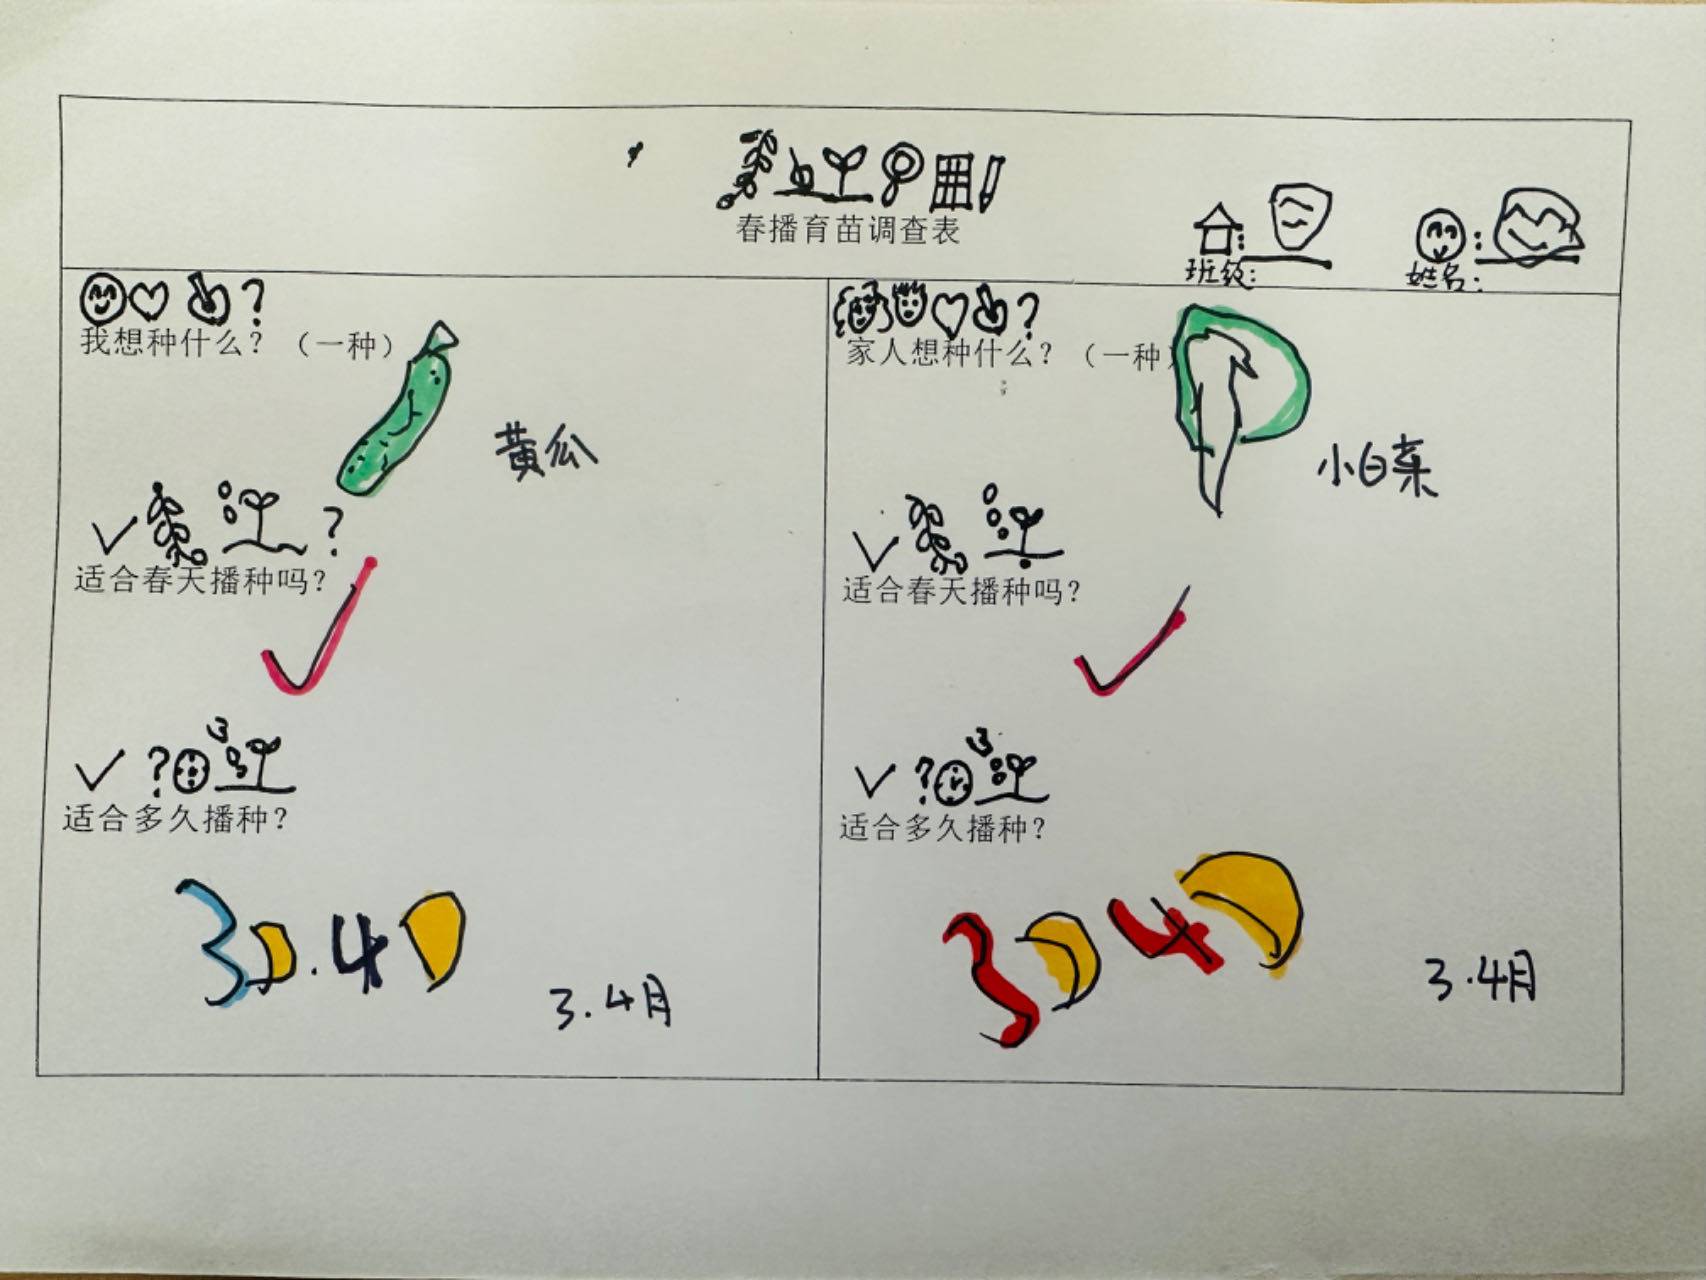 春播育苗调查表
班级:
姓名:
我想种什么？（一种）
黄瓜
适合春天播种吗？
适合多久播种？
3 . 4
3.4月
家人想种什么？（一种）
小白菜
适合春天播种吗？
适合多久播种？
3 4
3.4月